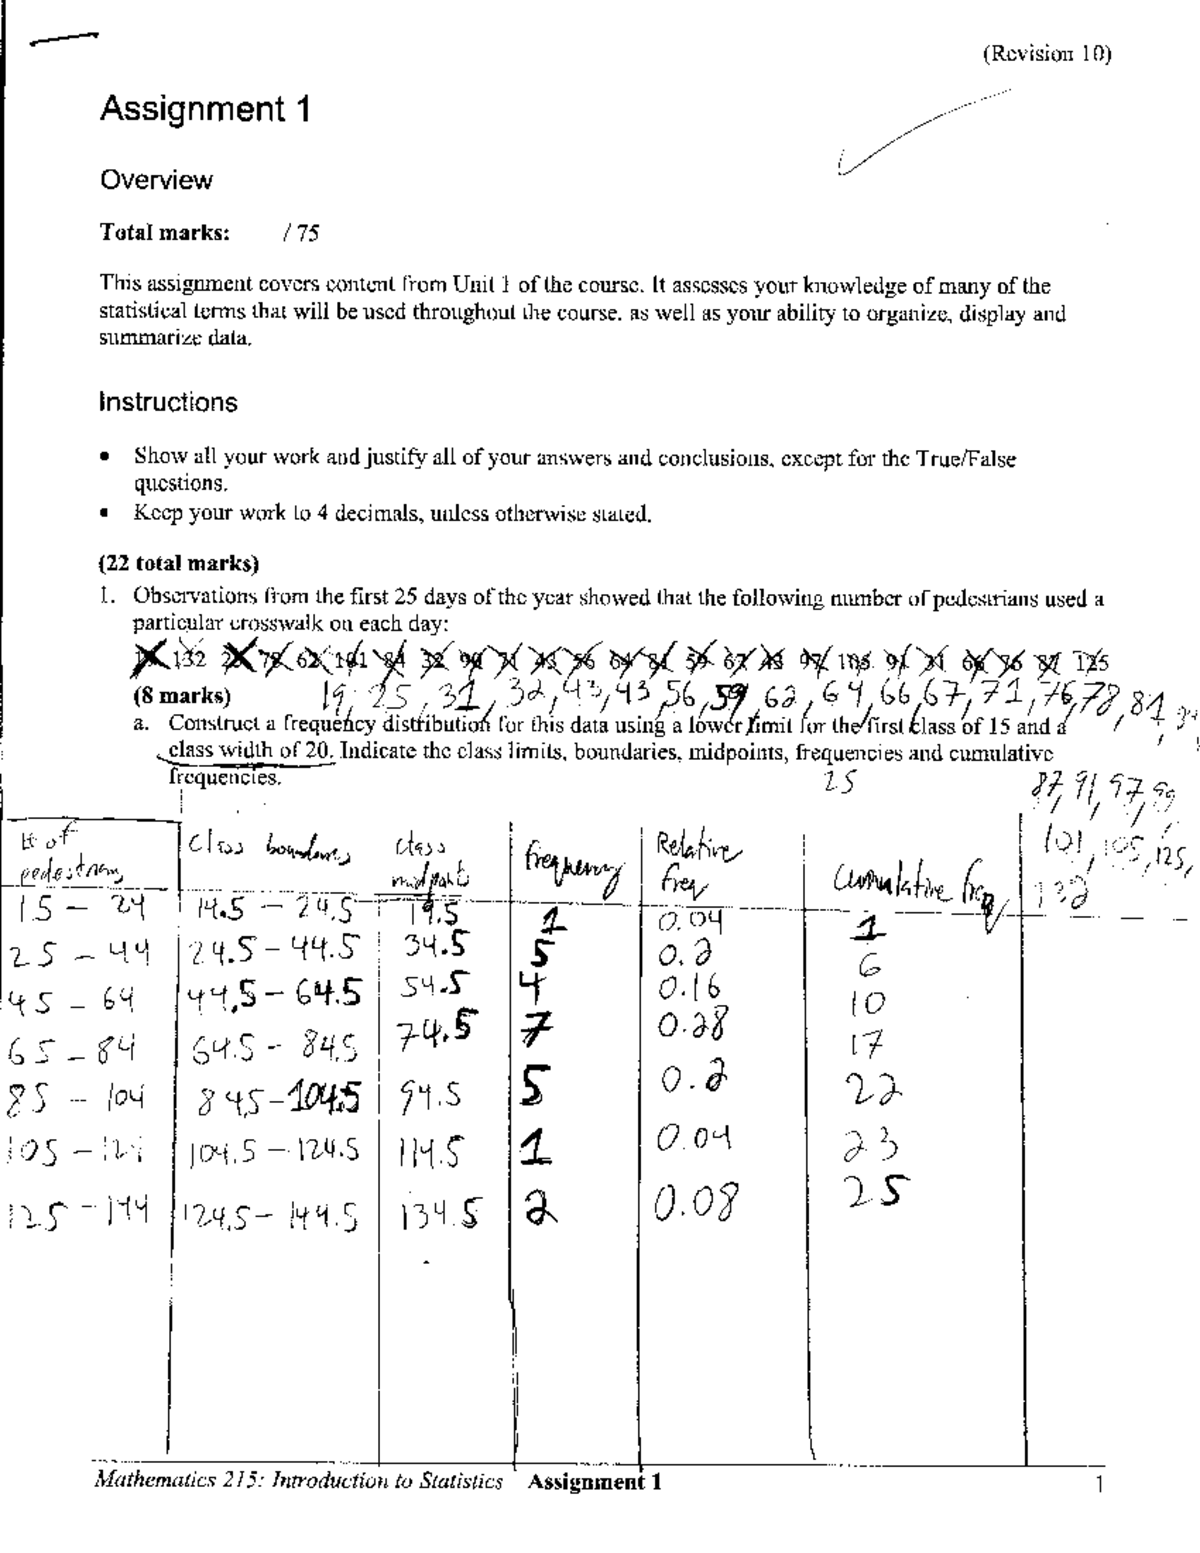 (Revision 10)
Assignment 1
Overview
Total marks: / 75
This assignment covers content from Unit 1 of the course. It assesses your knowledge of many of the
statistical terms that will be used throughout the course. as well as your ability to organize, display and
summarize data.
Instructions
• Show all your work and justify all of your answers and conclusions, except for the True/False
questions.
• Keep your work to 4 decimals, unless otherwise stated.
(22 total marks)
1. Observations from the first 25 days of the year showed that the following number of pedestrians used a
particular crosswalk on each day:
132 78 62 101 84 32 71 43 56 64 81 59 67 43 97 105 91 31 66 76 87 125
(8 marks) 19, 25, 31, 32, 43, 43, 56, 59, 62, 64, 66, 67, 71, 76, 78, 81,
a. Construct a frequency distribution for this data using a lower limit for the first class of 15 and a
class width of 20. Indicate the class limits, boundaries, midpoints, frequencies and cumulative
frequencies. 25
87, 91, 97, 99,
101, 105, 125,
132
# of pedestrians Class boundaries Class midpoints frequency Relative freq Cumulative freq
15 – 24 14.5 – 24.5 19.5 1 0.04 1
25 – 44 24.5 – 44.5 34.5 5 0.2 6
45 – 64 44.5 – 64.5 54.5 4 0.16 10
65 – 84 64.5 - 84.5 74.5 7 0.28 17
85 – 104 84.5 – 104.5 94.5 5 0.2 22
105 – 124 104.5 – 124.5 114.5 1 0.04 23
125 – 144 124.5 – 144.5 134.5 2 0.08 25
Mathematics 215: Introduction to Statistics Assignment 1 1